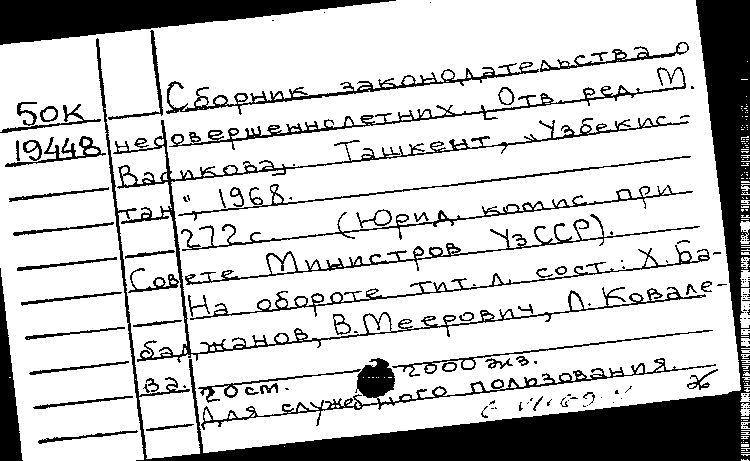 Сборник законодательства о
50К несовершеннолетних. Отв. ред. М.
19448 Васикова. Ташкент, „Узбекис-
тан", 1968.
272 с. (Юрид. комис. при
Совете Министров УзССР).
На обороте тит. л. сост.: Х. Ба-
баджанов, В. Меерович, Л. Ковале-
ва.
20 см. 2000 экз.
Для служебного пользования.